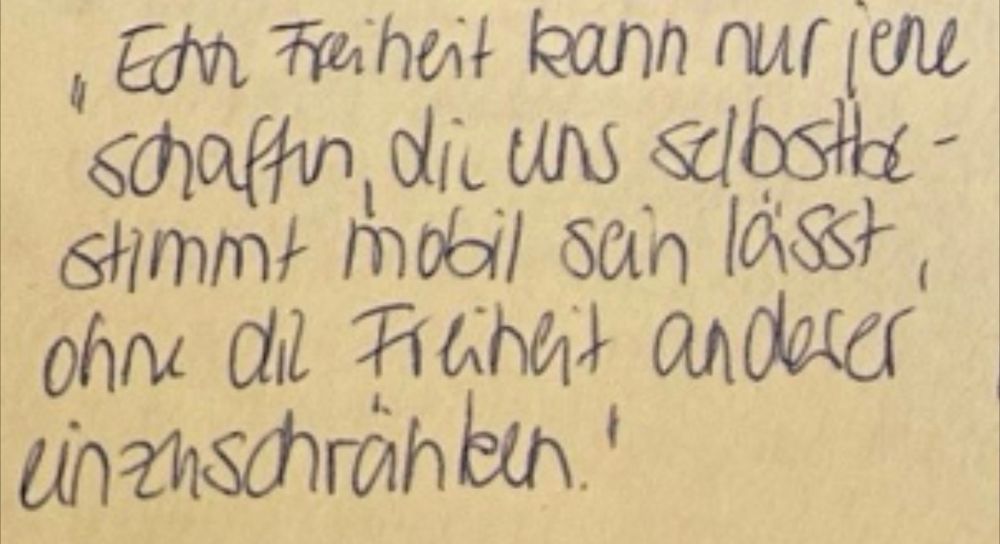 „Echte Freiheit kann nur jene
schaffen, die uns selbstbe-
stimmt mobil sein lässt,
ohne die Freiheit anderer
einzuschränken."